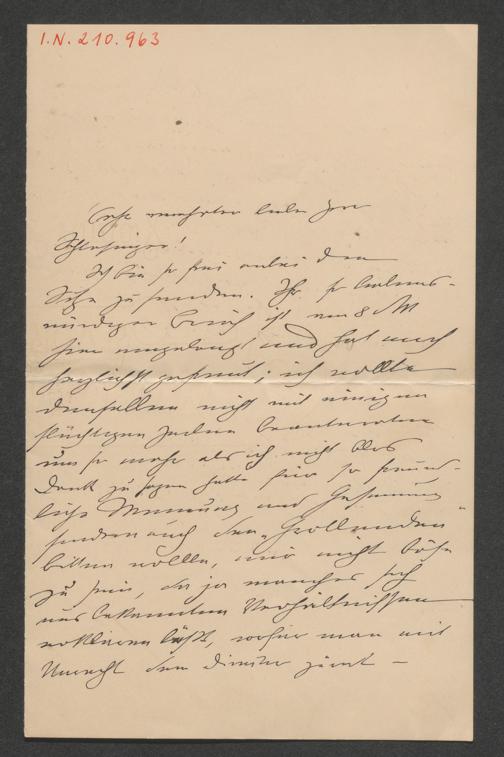 I.N. 210.963
Sehr verehrter lieber Herr
Schlesinger!
Ich bin so frei anbei den
zu senden. Ihr so liebens-
würdiger Brief ist am 8
hier eingelangt und hat mich
herzlichst gefreut; ich wollte
denselben nicht mit einigen
flüchtigen Zeilen beantworten
um so mehr als ich nicht blos
Dank zu sagen hatte für so freund-
liche Meinung und Gesinnung
sondern auch den „Grollenden“
bitten wollte, mir nicht böse
zu sein, da ja manches sich
aus bekannten Verhältnissen
erklären läßt, wofür man mit
Unrecht dem Director zürnt –